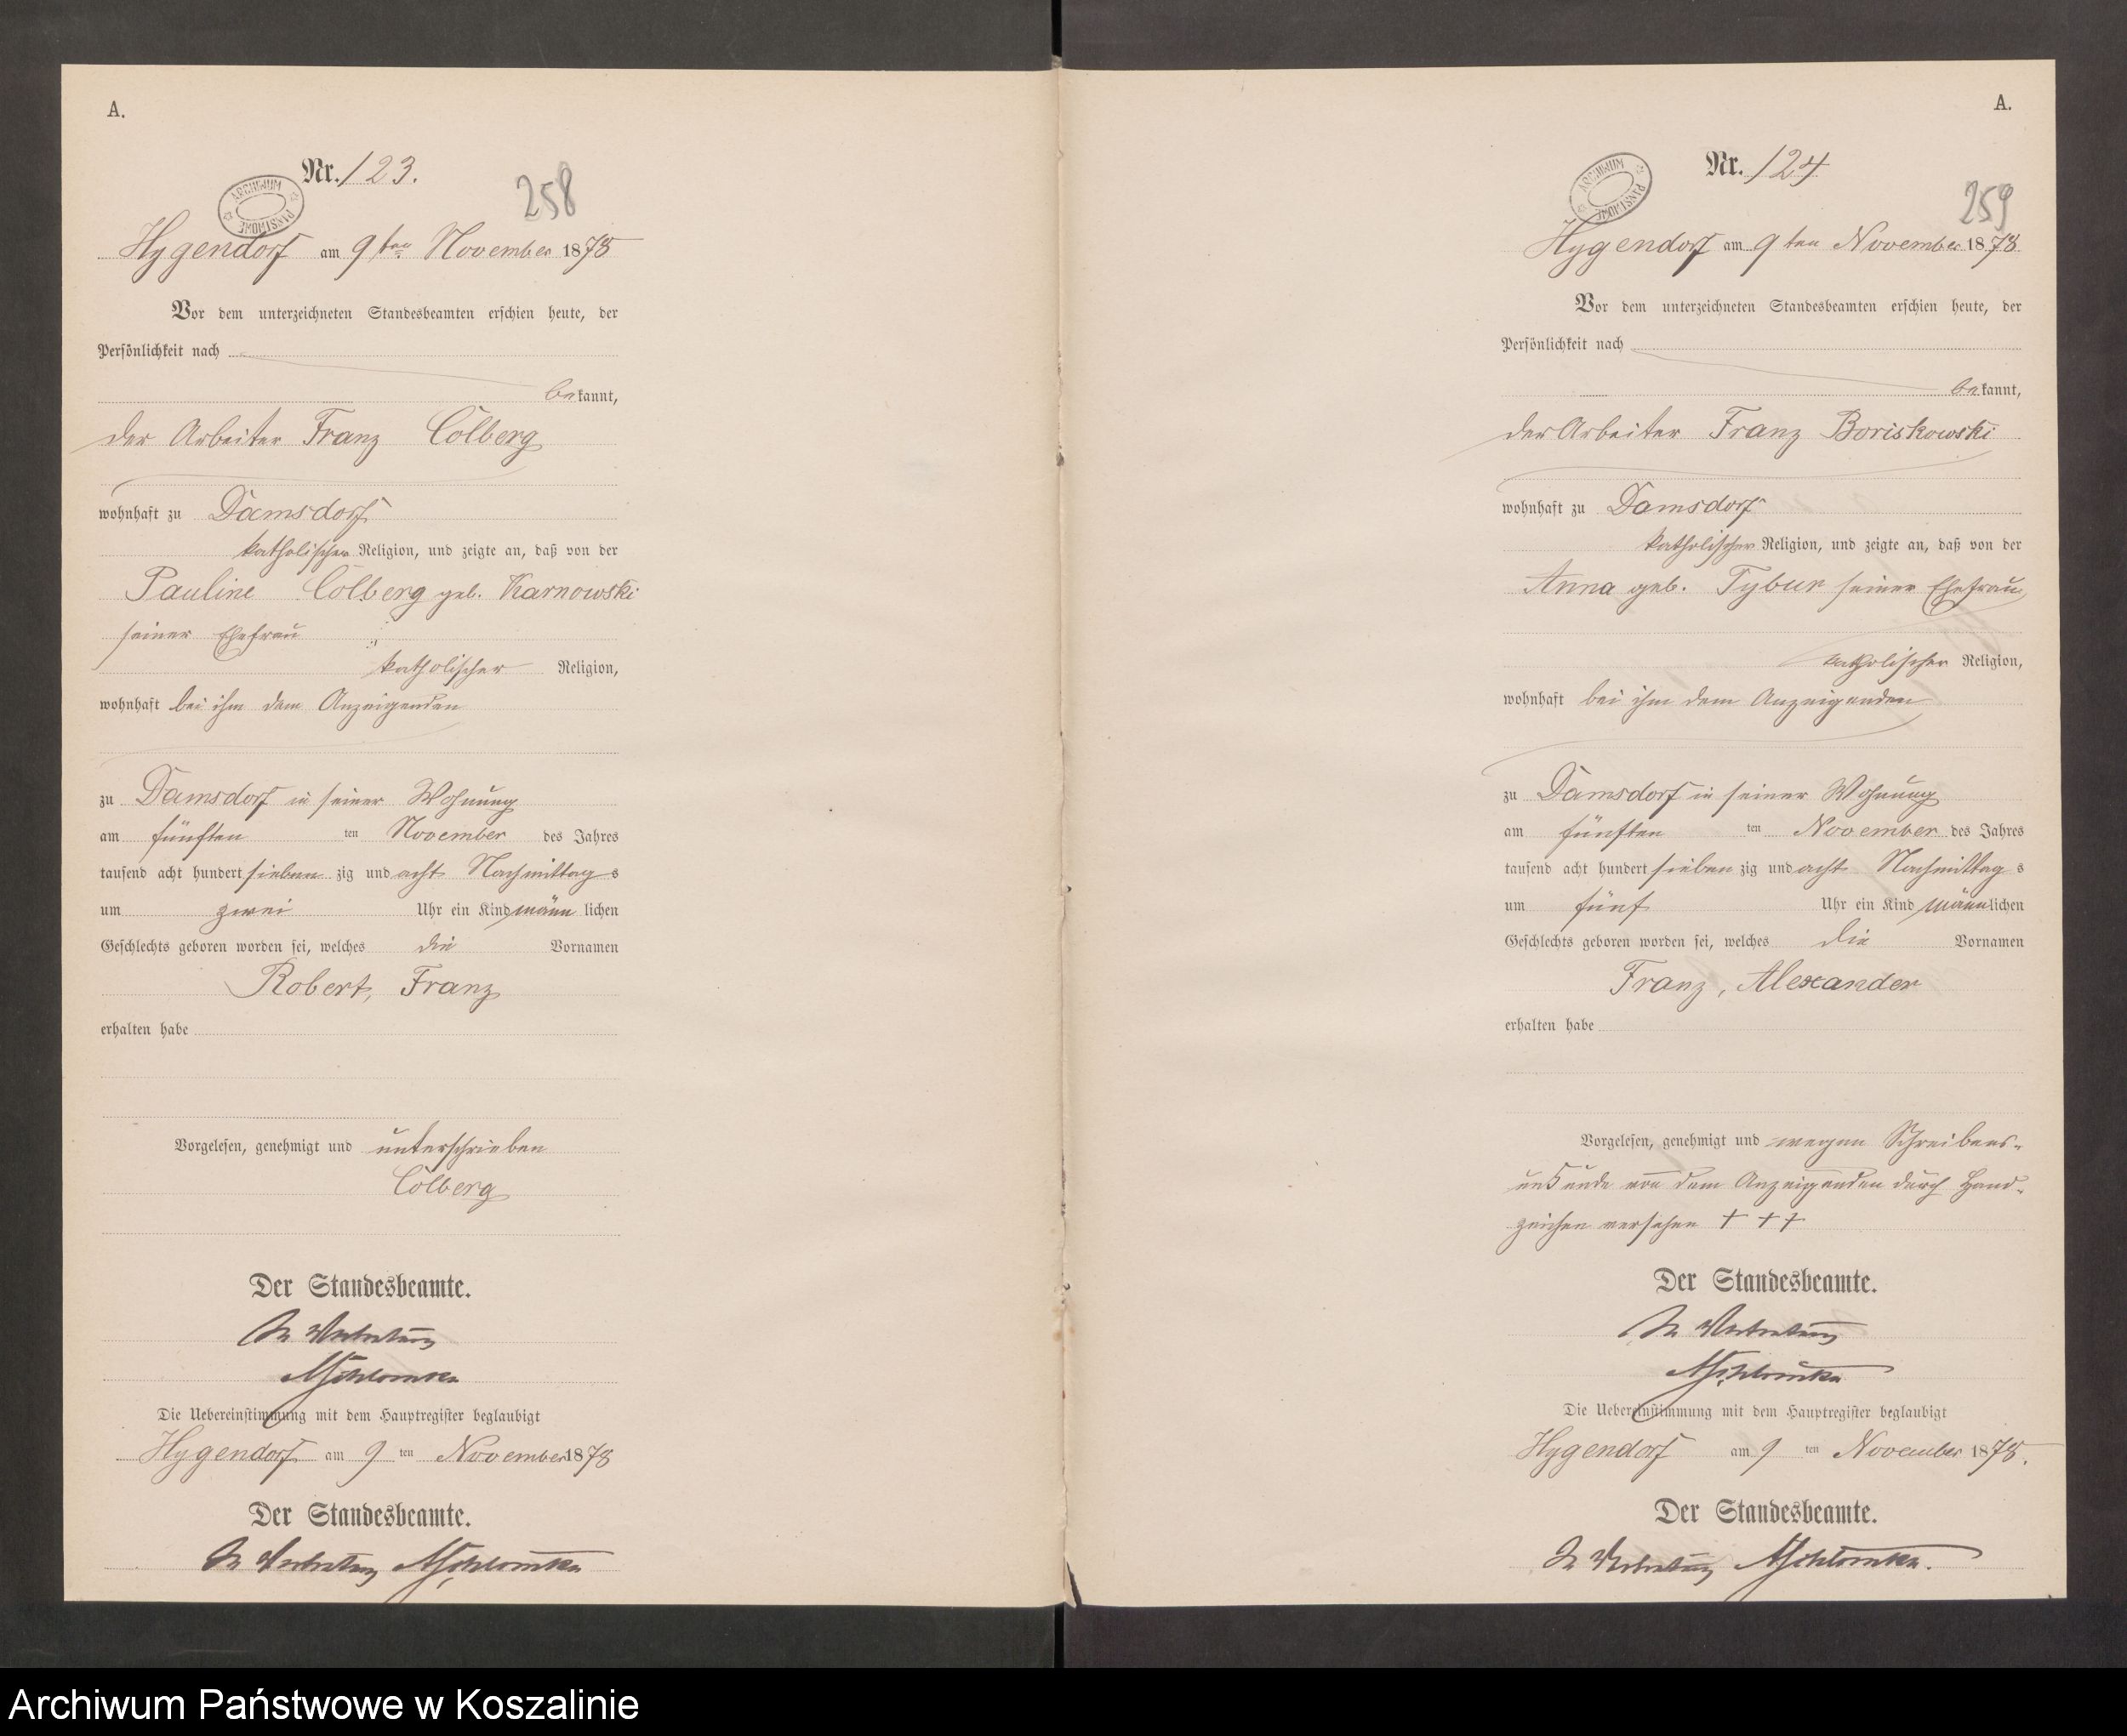 A.
Nr. 123.
ARCHIWUM PAŃSTWOWE
258
Hygendorf am 9 ten November 1878
Vor dem unterzeichneten Standesbeamten erschien heute, der
Persönlichkeit nach
bekannt,
der Arbeiter Franz Colberg
wohnhaft zu Damsdorf
katholischer Religion, und zeigte an, daß von der
Pauline Colberg geb. Karnowski
seiner Ehefrau
katholischer Religion,
wohnhaft bei ihm dem Anzeigenden
zu Damsdorf in seiner Wohnung
am fünften ten November des Jahres
tausend acht hundert sieben zig und acht Nachmittag s
um zwei Uhr ein Kind männ lichen
Geschlechts geboren worden sei, welches die Vornamen
Robert, Franz
erhalten habe
Vorgelesen, genehmigt und unterschrieben
Colberg
Der Standesbeamte.
In Vertretung
Die Uebereinstimmung mit dem Hauptregister beglaubigt
Hygendorf am 9 ten November 1878
Der Standesbeamte.
In Vertretung
A.
Nr. 124
ARCHIWUM PAŃSTWOWE
259
Hygendorf am 9 ten November 1878
Vor dem unterzeichneten Standesbeamten erschien heute, der
Persönlichkeit nach
bekannt,
der Arbeiter Franz Boriskowski
wohnhaft zu Damsdorf
katholischer Religion, und zeigte an, daß von der
Anna geb. Tybur seiner Ehefrau
katholischer Religion,
wohnhaft bei ihm dem Anzeigenden
zu Damsdorf in seiner Wohnung
am fünften ten November des Jahres
tausend acht hundert sieben zig und acht Nachmittag s
um fünf Uhr ein Kind männlichen
Geschlechts geboren worden sei, welches die Vornamen
Franz, Alexander
erhalten habe
Vorgelesen, genehmigt und wegen Schreibens-
unkunde von dem Anzeigenden durch Hand-
zeichen versehen + + +
Der Standesbeamte.
In Vertretung
Die Uebereinstimmung mit dem Hauptregister beglaubigt
Hygendorf am 9 ten November 1878.
Der Standesbeamte.
In Vertretung
Archiwum Państwowe w Koszalinie